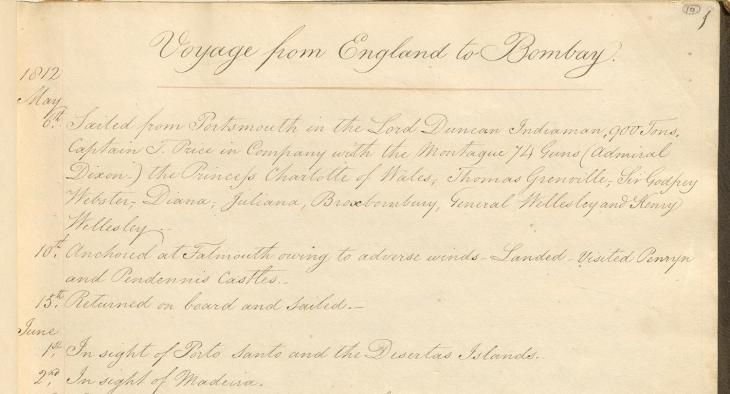 10
1
Voyage from England to Bombay.
1812
May
6th. Sailed from Portsmouth in the Lord Duncan Indiaman, 900 Tons,
Captain J. Price in Company with the Montague 74 Guns (Admiral
Dixon.) the Princess Charlotte of Wales; Thomas Grenville; Sir Godfrey
Webster; Diana; Juliana; Broxbornbury, General Wellesley and Henry
Wellesley.
10th. Anchored at Falmouth owing to adverse winds - Landed - Visited Penryn
and Pendennis Castles.
15th. Returned on board and sailed.
June
1st. In sight of Porto Santo and the Desertas Islands.
2nd. In sight of Madeira.